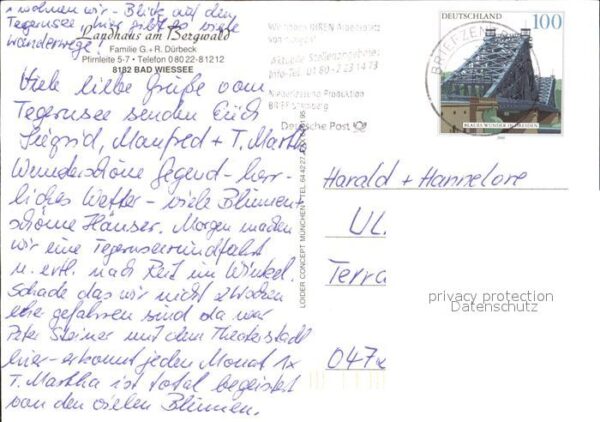 wohnen wir - Blick auf den
Tegernsee, hier gibt es viele
Wanderwege!
Landhaus am Bergwald
Familie G. + R. Dürbeck
Pfirnleite 5-7 • Telefon 0 80 22 - 8 12 12
8182 BAD WIESSEE
Viele liebe Grüße vom
Tegernsee senden Euch
Siegrid, Manfred + T. Martha
Wunderschöne Gegend - herr-
liches Wetter - viele Blumen +
schöne Häuser. Morgen machen
wir eine Tegernseerundfahrt
u. evtl. nach Reit im Winkel.
Schade das wir nicht 2 Wochen
eher gefahren sind da war
Peter Steiner mit dem Theaterstadl
hier - er kommt jeden Monat 1x
T. Martha ist total begeistert
von den vielen Blumen.
LOIDER CONCEPT MÜNCHEN
TEL.
IHREN Arbeitsplatz
Aktuelle Stellenangebote:
Info-Tel.: 01 80 - 2 23 14 73
Niederlassung Produktion
BRIEF Straubing
Deutsche Post
BRIEFZEN
DEUTSCHLAND
100
BLAUES WUNDER IN DRESDEN
2000
Harald + Hannelore
Ul.
Terra
047
privacy protection
Datenschutz